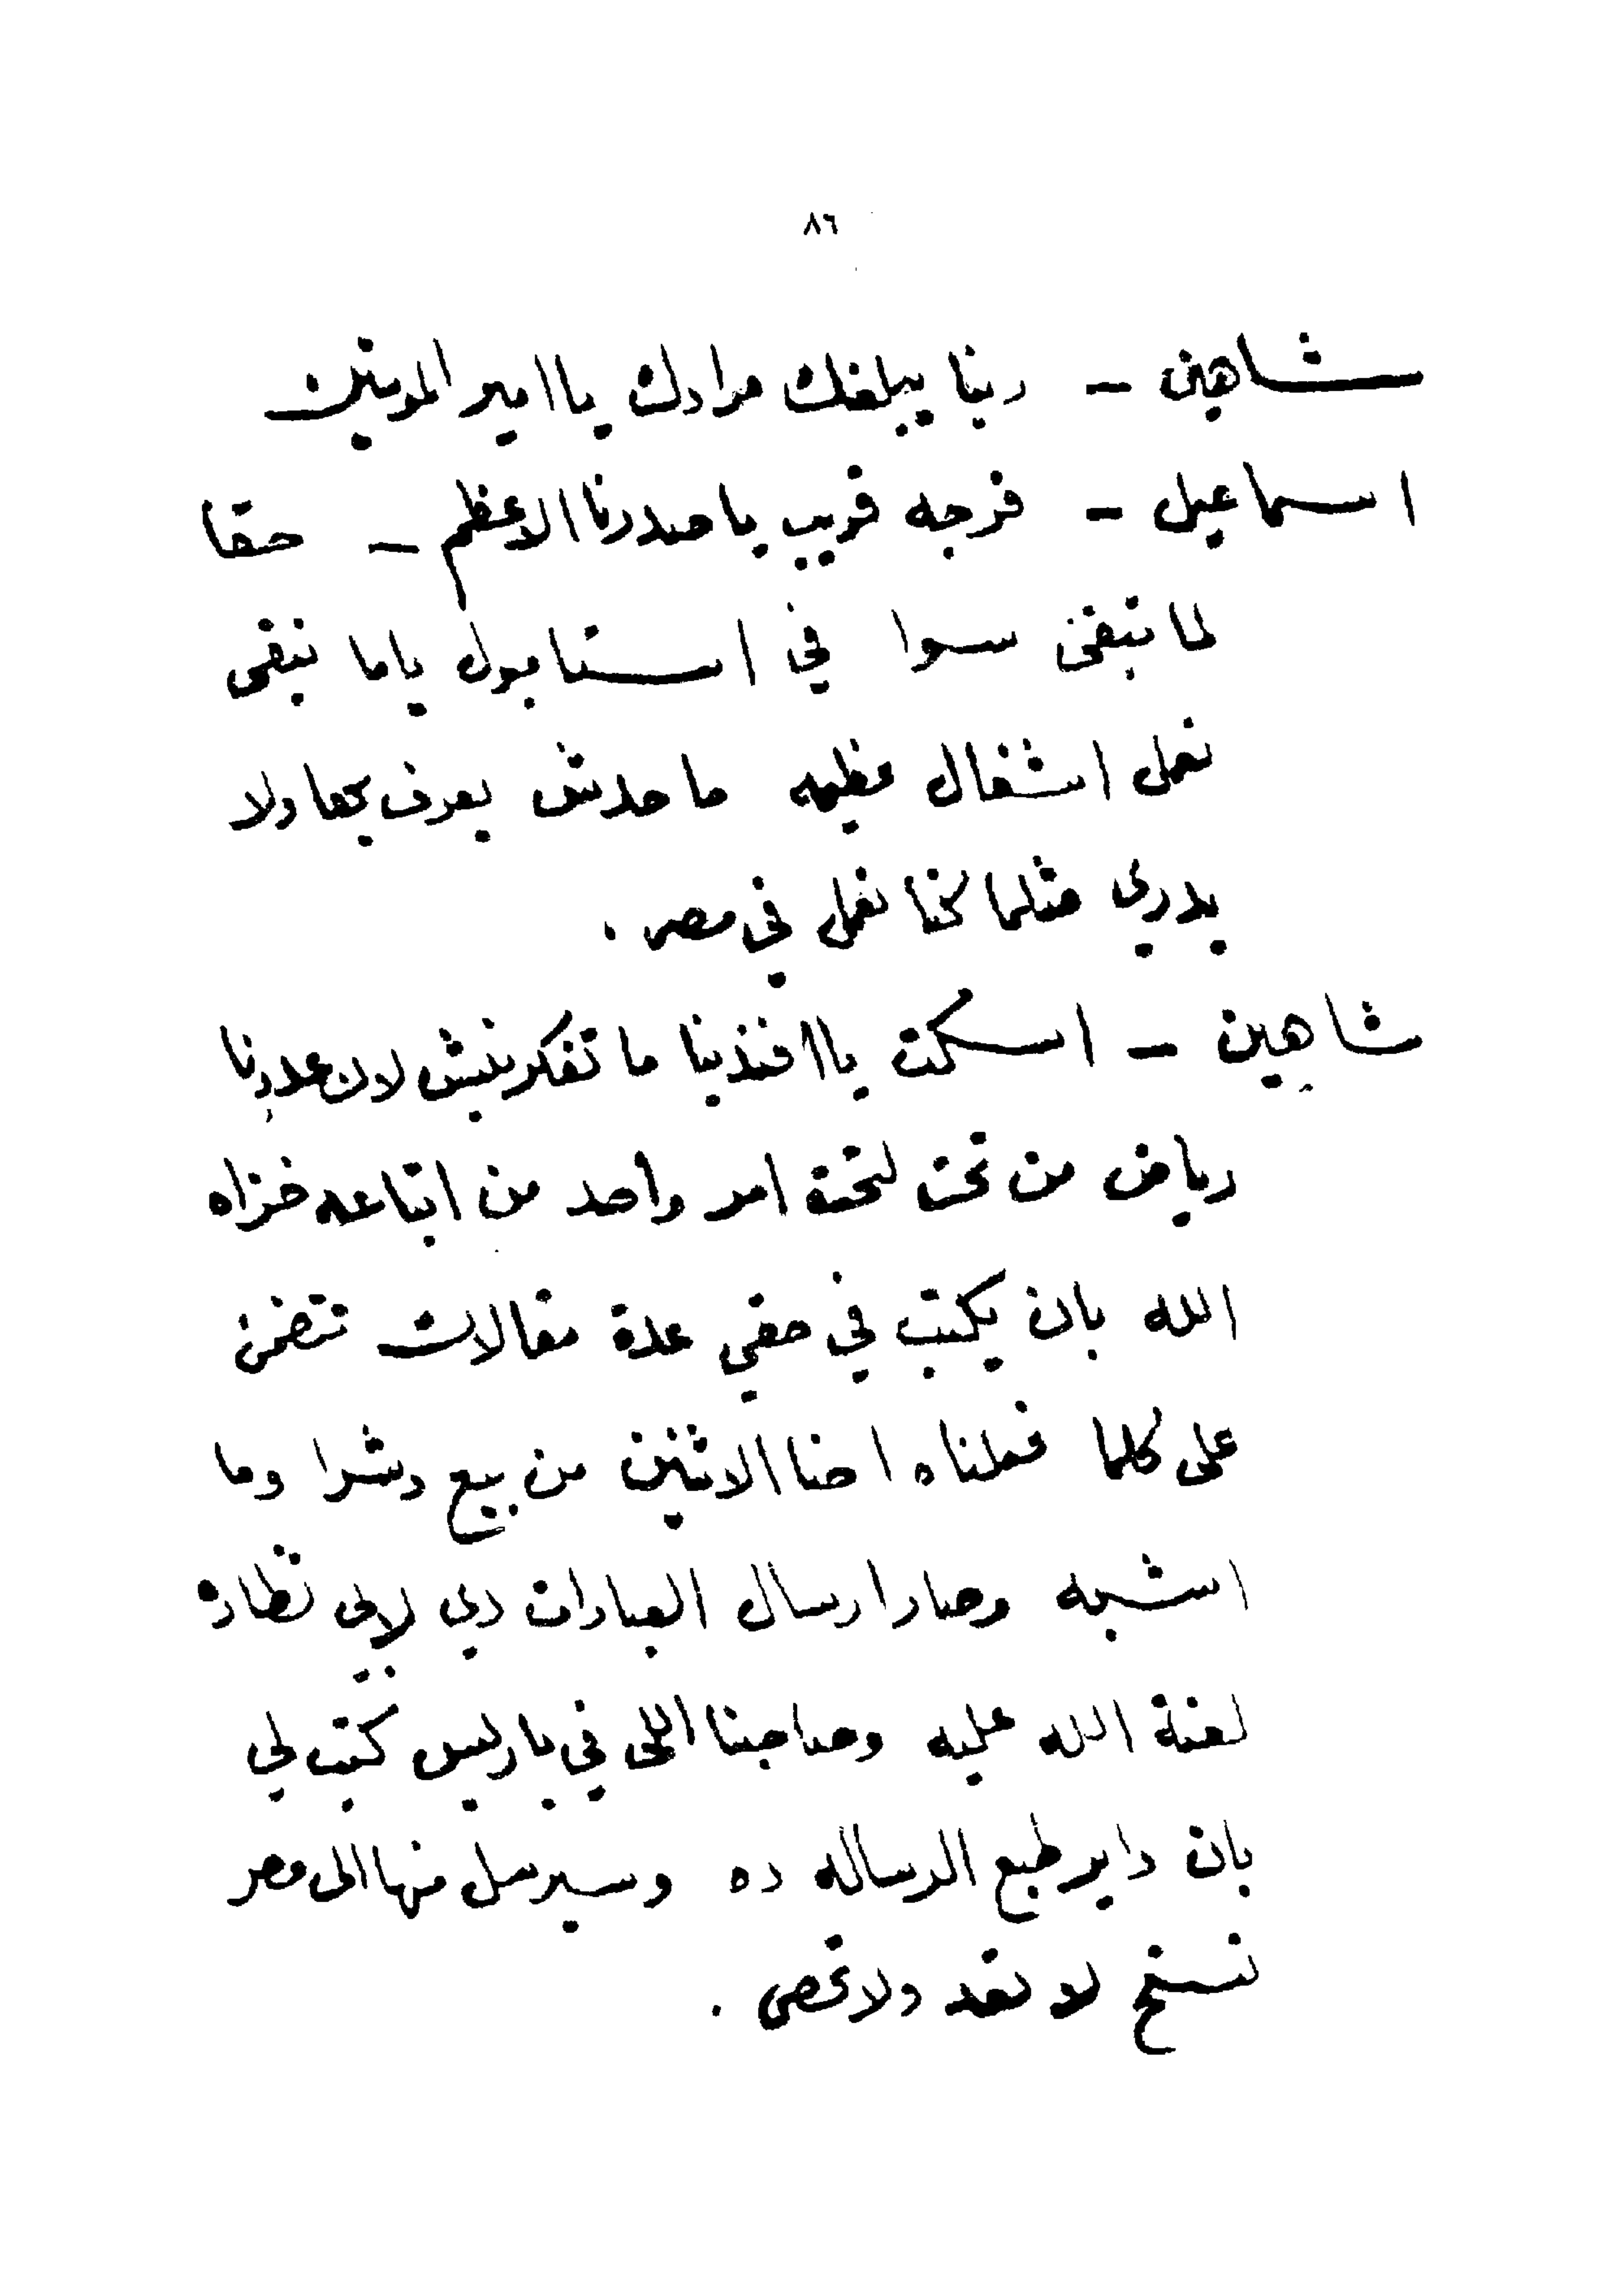 ٨٦
شاهين - ربنا يبلغك مرادك يا امير المومنين
اسماعيل - فرجه قريب يا صدرنا الاعظم - حقا
لما نبقى سوا في استامبول ياما نبقى
نعمل اشغال عظيمه ما حدش يعرف بها ولا
يدري مثلما كنا نعمل في مصر .
شاهين - اسكت يا افندينا ما تفكرنيش لان عدونا
رياض من تحت لتحت امر واحد من اتباعه خزاه
الله بان يكتب في حقي عدة مقالات تتضمن
على كلما فعلناه احنا الاثنين من بيع وشرا وما
اشبه وصار ارسال العبارات دي لابي نظاره
لعنة الله عليه وصاحبنا اللي في باريس كتب لي
بان داير طبع الرساله ده وسيرسل منها الى مصر
نسخ لا تعد ولا تحصى .